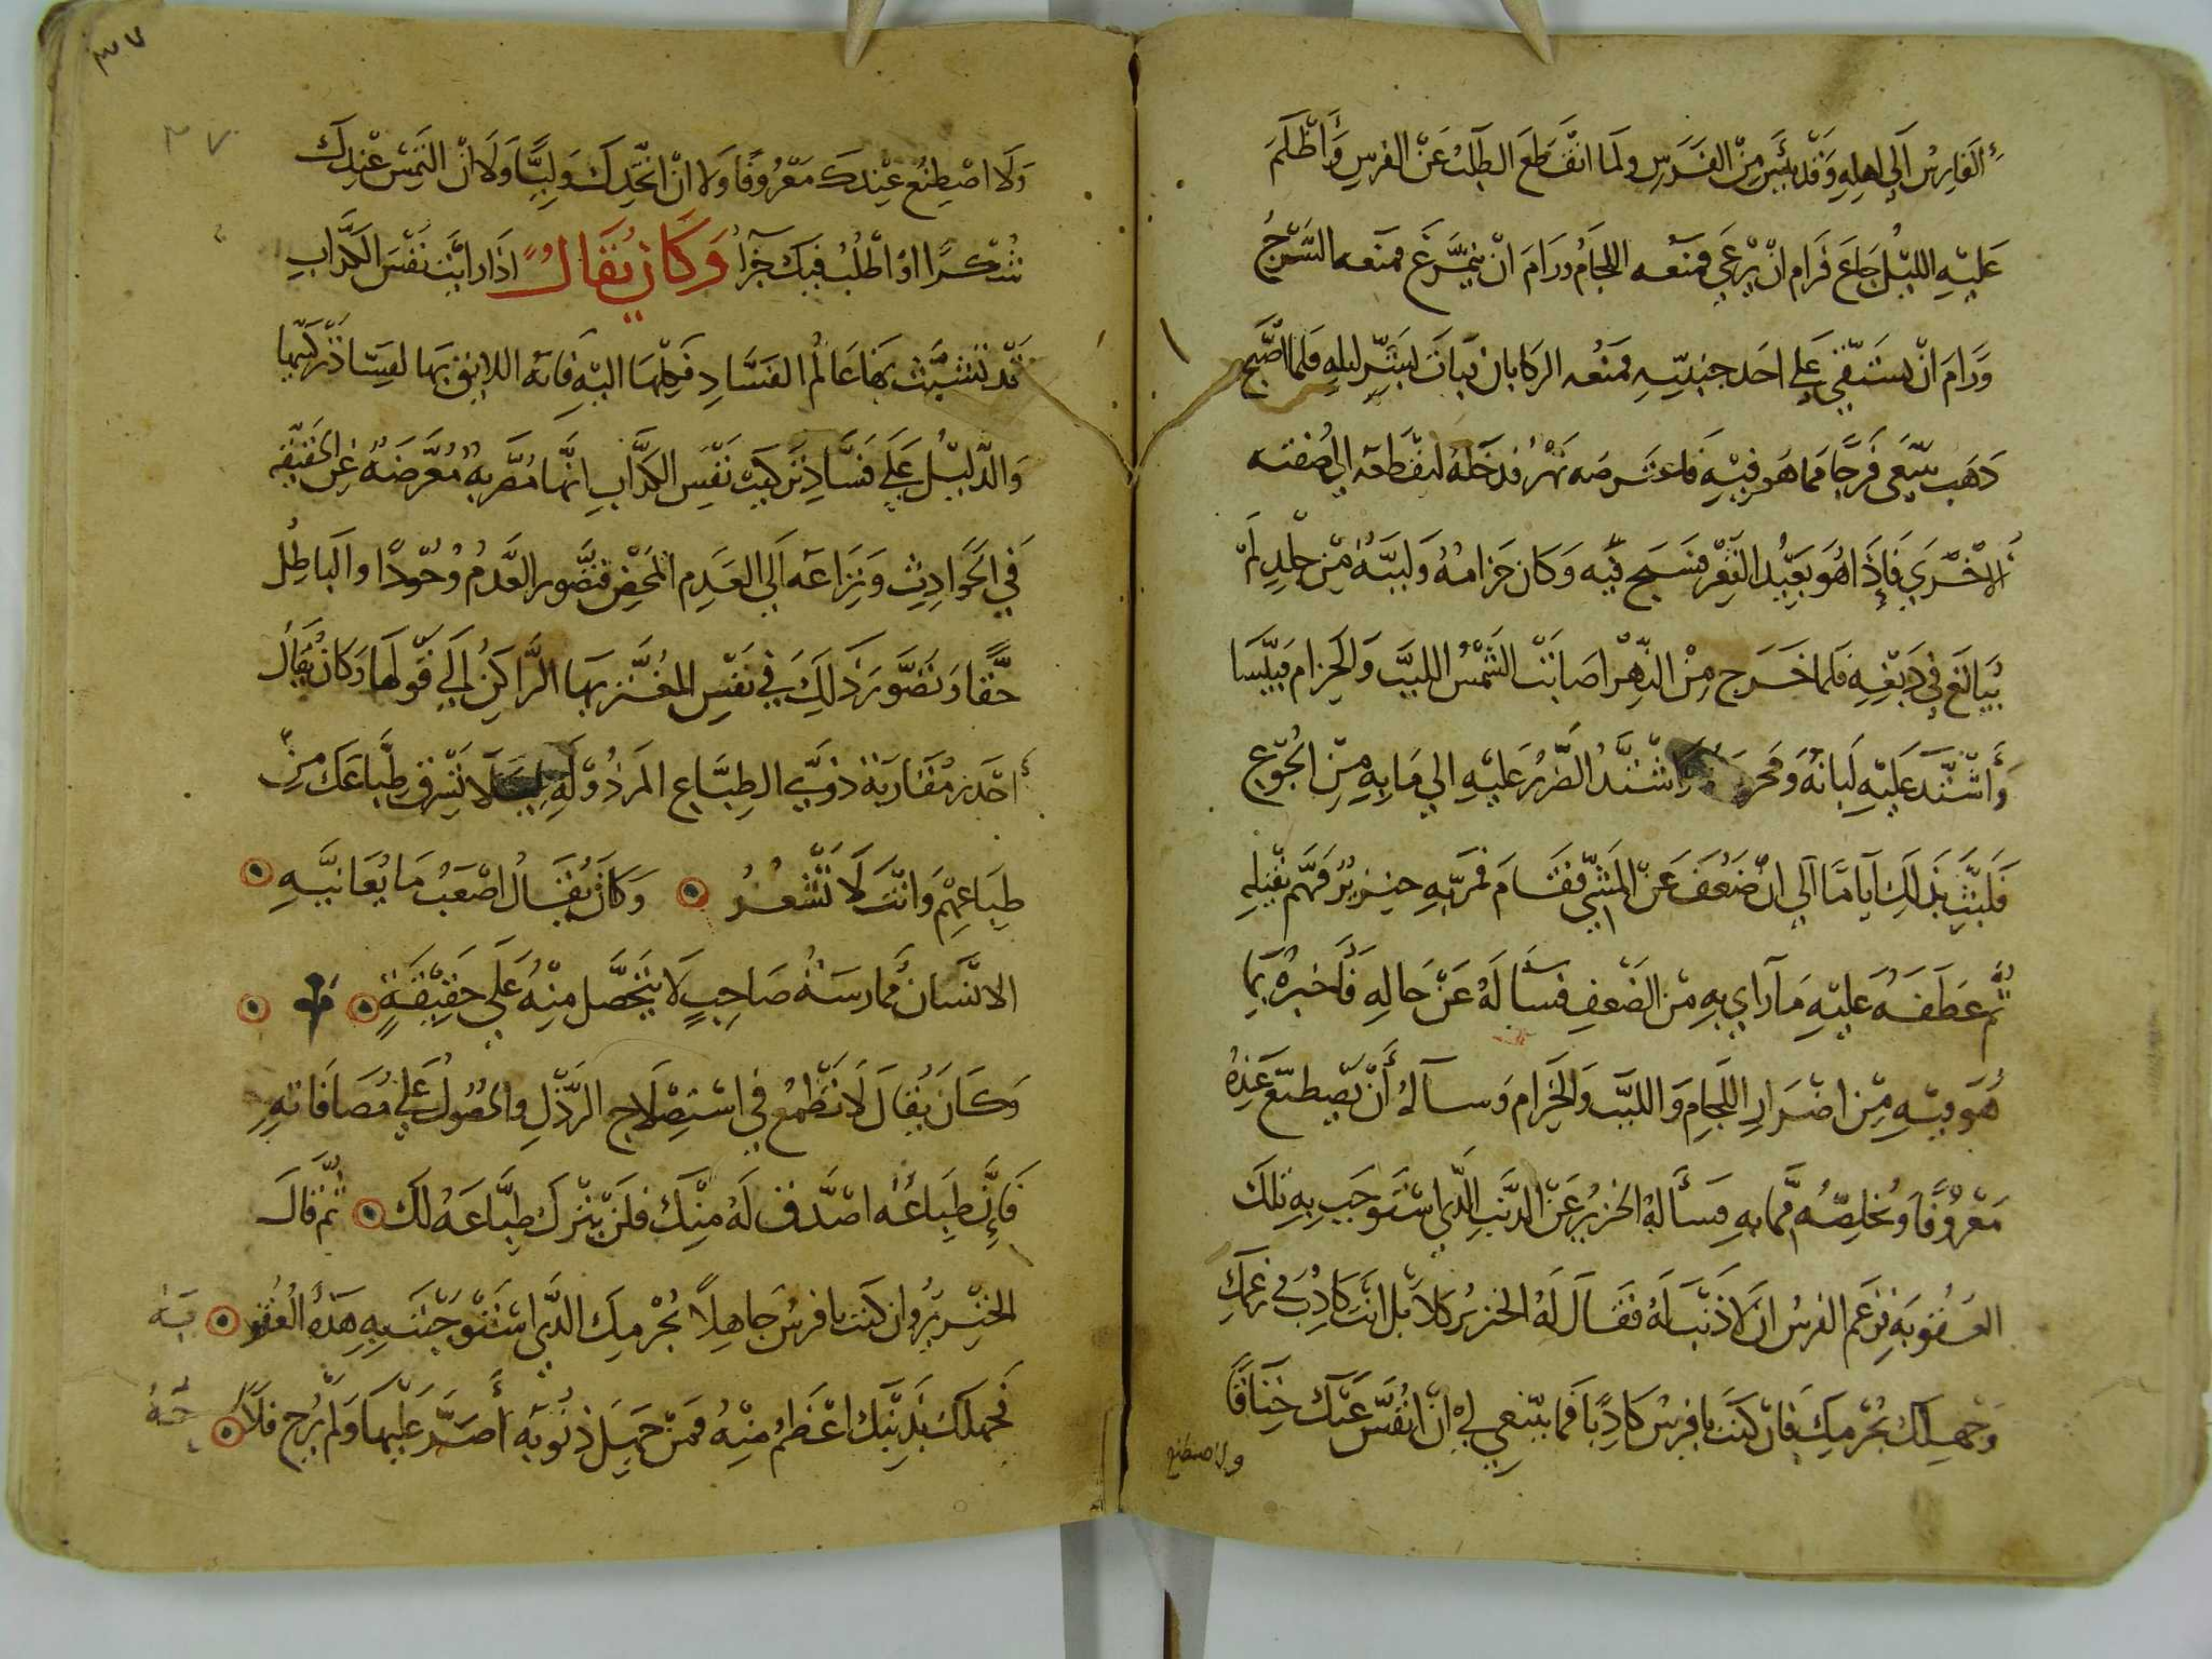 الفارس الي اهله وقد يئس من الفرس ولما انقطع الطلب عن الفرس وأظلم
عليه الليل جاع فرام ان يرعي فمنعه اللجام ورام ان يتمرغ فمنعه السرج
ورام ان يستقي علي احد جنبيه فمنعه الركابان فبات بشر ليله فلما اصبح
ذهب يبتغي فرجا مما هو فيه فاعترضه نهر فدخله ليقطعه الي ضفته
الاخري فاذا هو بعيد القعر فسبح فيه وكان حزامه ولببه من جلد لم
يبالغ في دبغه فلما خرج من النهر اصابت الشمس اللبب والحزام فيبسا
واشتد عليه لبانه ومحزمه واشتد الضرر عليه الي ما به من الجوع
فلبث بذلك اياما الي ان ضعف عن المشي فقام فمر به خنزير فهم بقتله
ثم عطفه عليه ما راي به من الضعف فسأله عن حاله فأخبره بما
هو فيه من اضرار اللجام واللبب والحزام وساله أن يصطنع عنده
معروفا ويخلصه مما به فسأله الخنزير عن الذنب الذي استوجب به تلك
العقوبة فزعم الفرس ان لا ذنب له فقال له الخنزير كلا بل انت كاذب في زعمك
وجهلك بجرمك فان كنت يا فرس كاذبا فما ينبغي لي ان انفس عنك خناقا
ولا اصطنع
٣٧
٣٧
ولا اصطنع عندك معروفا ولا ان اتخذك وليا ولا ان التمس عندك
شكرا او اطلب فيك جزاء وكان يقال اذا رايت نفس الكذاب
قد تشبث بها عالم الفساد فكلها اليه فانه اللايق بها لفساد تركيبها
والدليل علي فساد تركيب نفس الكذاب انها مضربة معرضة عن الحقيقه
في الحوادث ونزاعه الي العدم المحض فتصور العدم وجودا والباطل
حقا وتصور ذلك في نفس المغتر بها الراكن الي قولها وكان يقال
احذر مقارنة ذوي الطباع المرذولة ليلا تسرق طباعك من
طباعهم وانت لا تشعر وكان يقال اصعب ما يعانيه
الانسان ممارسة صاحب لا يتحصل منه علي حقيقة
وكان يقال لا تطمع في استصلاح الرذل والحصول علي مصافاته
فإن طباعه اصدق له منك فلن يترك طباعه لك ثم قال
الخنزير وان كنت يا فرس جاهلا بجرمك الذي استوجبت به هذه العقو بة
فجهلك بذنبك اعظم منه فمن جهل ذنوبه أصر عليها ولم يرج فلا حه